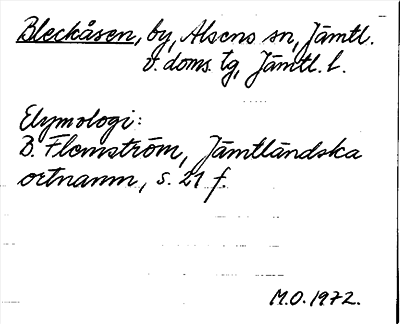 Bleckåsen, by, Alsens sn, Jämtl.
v. doms. tg, Jämtl. l.
Etymologi:
B. Flemström, Jämtländska
ortnamn, s. 21 f.
M.O. 1972.